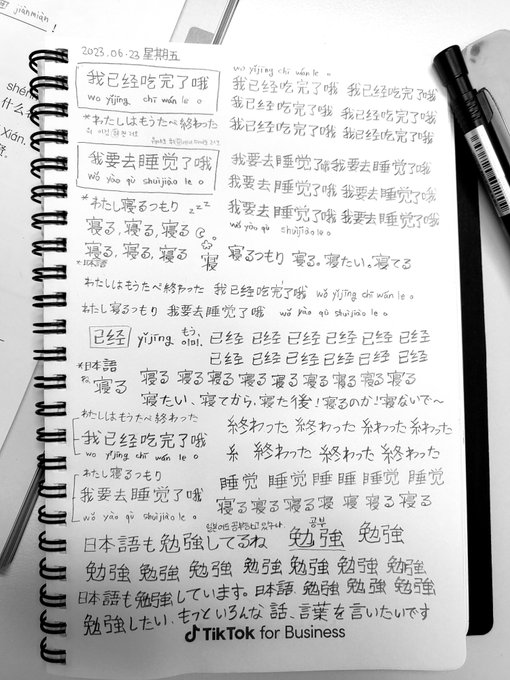 jiànmiàn
!
shén
什么
Xián.
2023.06.23 星期五
wo yǐjīng chī wán le o
我已经吃完了哦 我已经吃完了哦 我已经吃完了哦
wo yǐjīng chī wán le o 我已经吃完了哦 我已经吃完了哦
*わたしはもうたべ終わった 我已经吃完了哦 我已经吃完了哦
我要去睡觉了哦 我要去睡觉了哦 我要去睡觉了哦
wǒ yào qù shuìjiào le o 我要去睡觉了哦 我要去睡觉了哦
*わたし寝るつもり zzz 我要去睡觉了哦 我要去睡觉了哦
wǒ yào qù shuìjiào le o
寝る, 寝る, 寝る
寝る, 寝る, 寝る 寝 寝るつもり 寝る。寝たい。寝てる
*日本語
わたしはもうたべ終わった 我已经吃完了哦 wǒ yǐjīng chī wán le o
わたし寝るつもり 我要去睡觉了哦 wǒ yào qù shuìjiào le o
已经 yǐjīng もう, 이미. 已经 已经 已经 已经 已经 已经
已经 已经 已经 已经 已经 已经
*日本語
ね
寝る 寝る 寝る 寝る 寝る 寝る 寝る 寝る 寝る
寝たい、寝てから, 寝た後! 寝るのか! 寝ないで〜
わたしはもうたべ終わった
我已经吃完了哦 終わった 終わった 終わった 終わった
wo yǐjīng chī wán le o 糸 終わった 終わった 終わった
わたし寝るつもり 睡觉 睡觉 睡觉 睡觉 睡觉
我要去睡觉了哦 寝る 寝る 寝る 寝る 寝る 寝る
wǒ yào qù shuìjiào le o
공부
日本語も勉強してるね 勉強 勉強
勉強 勉強 勉強 勉強 勉強 勉強 勉強
日本語も勉強しています。日本語. 勉強 勉強 勉強
勉強したい、もっといろんな 話、言葉を言いたいです
TikTok for Business